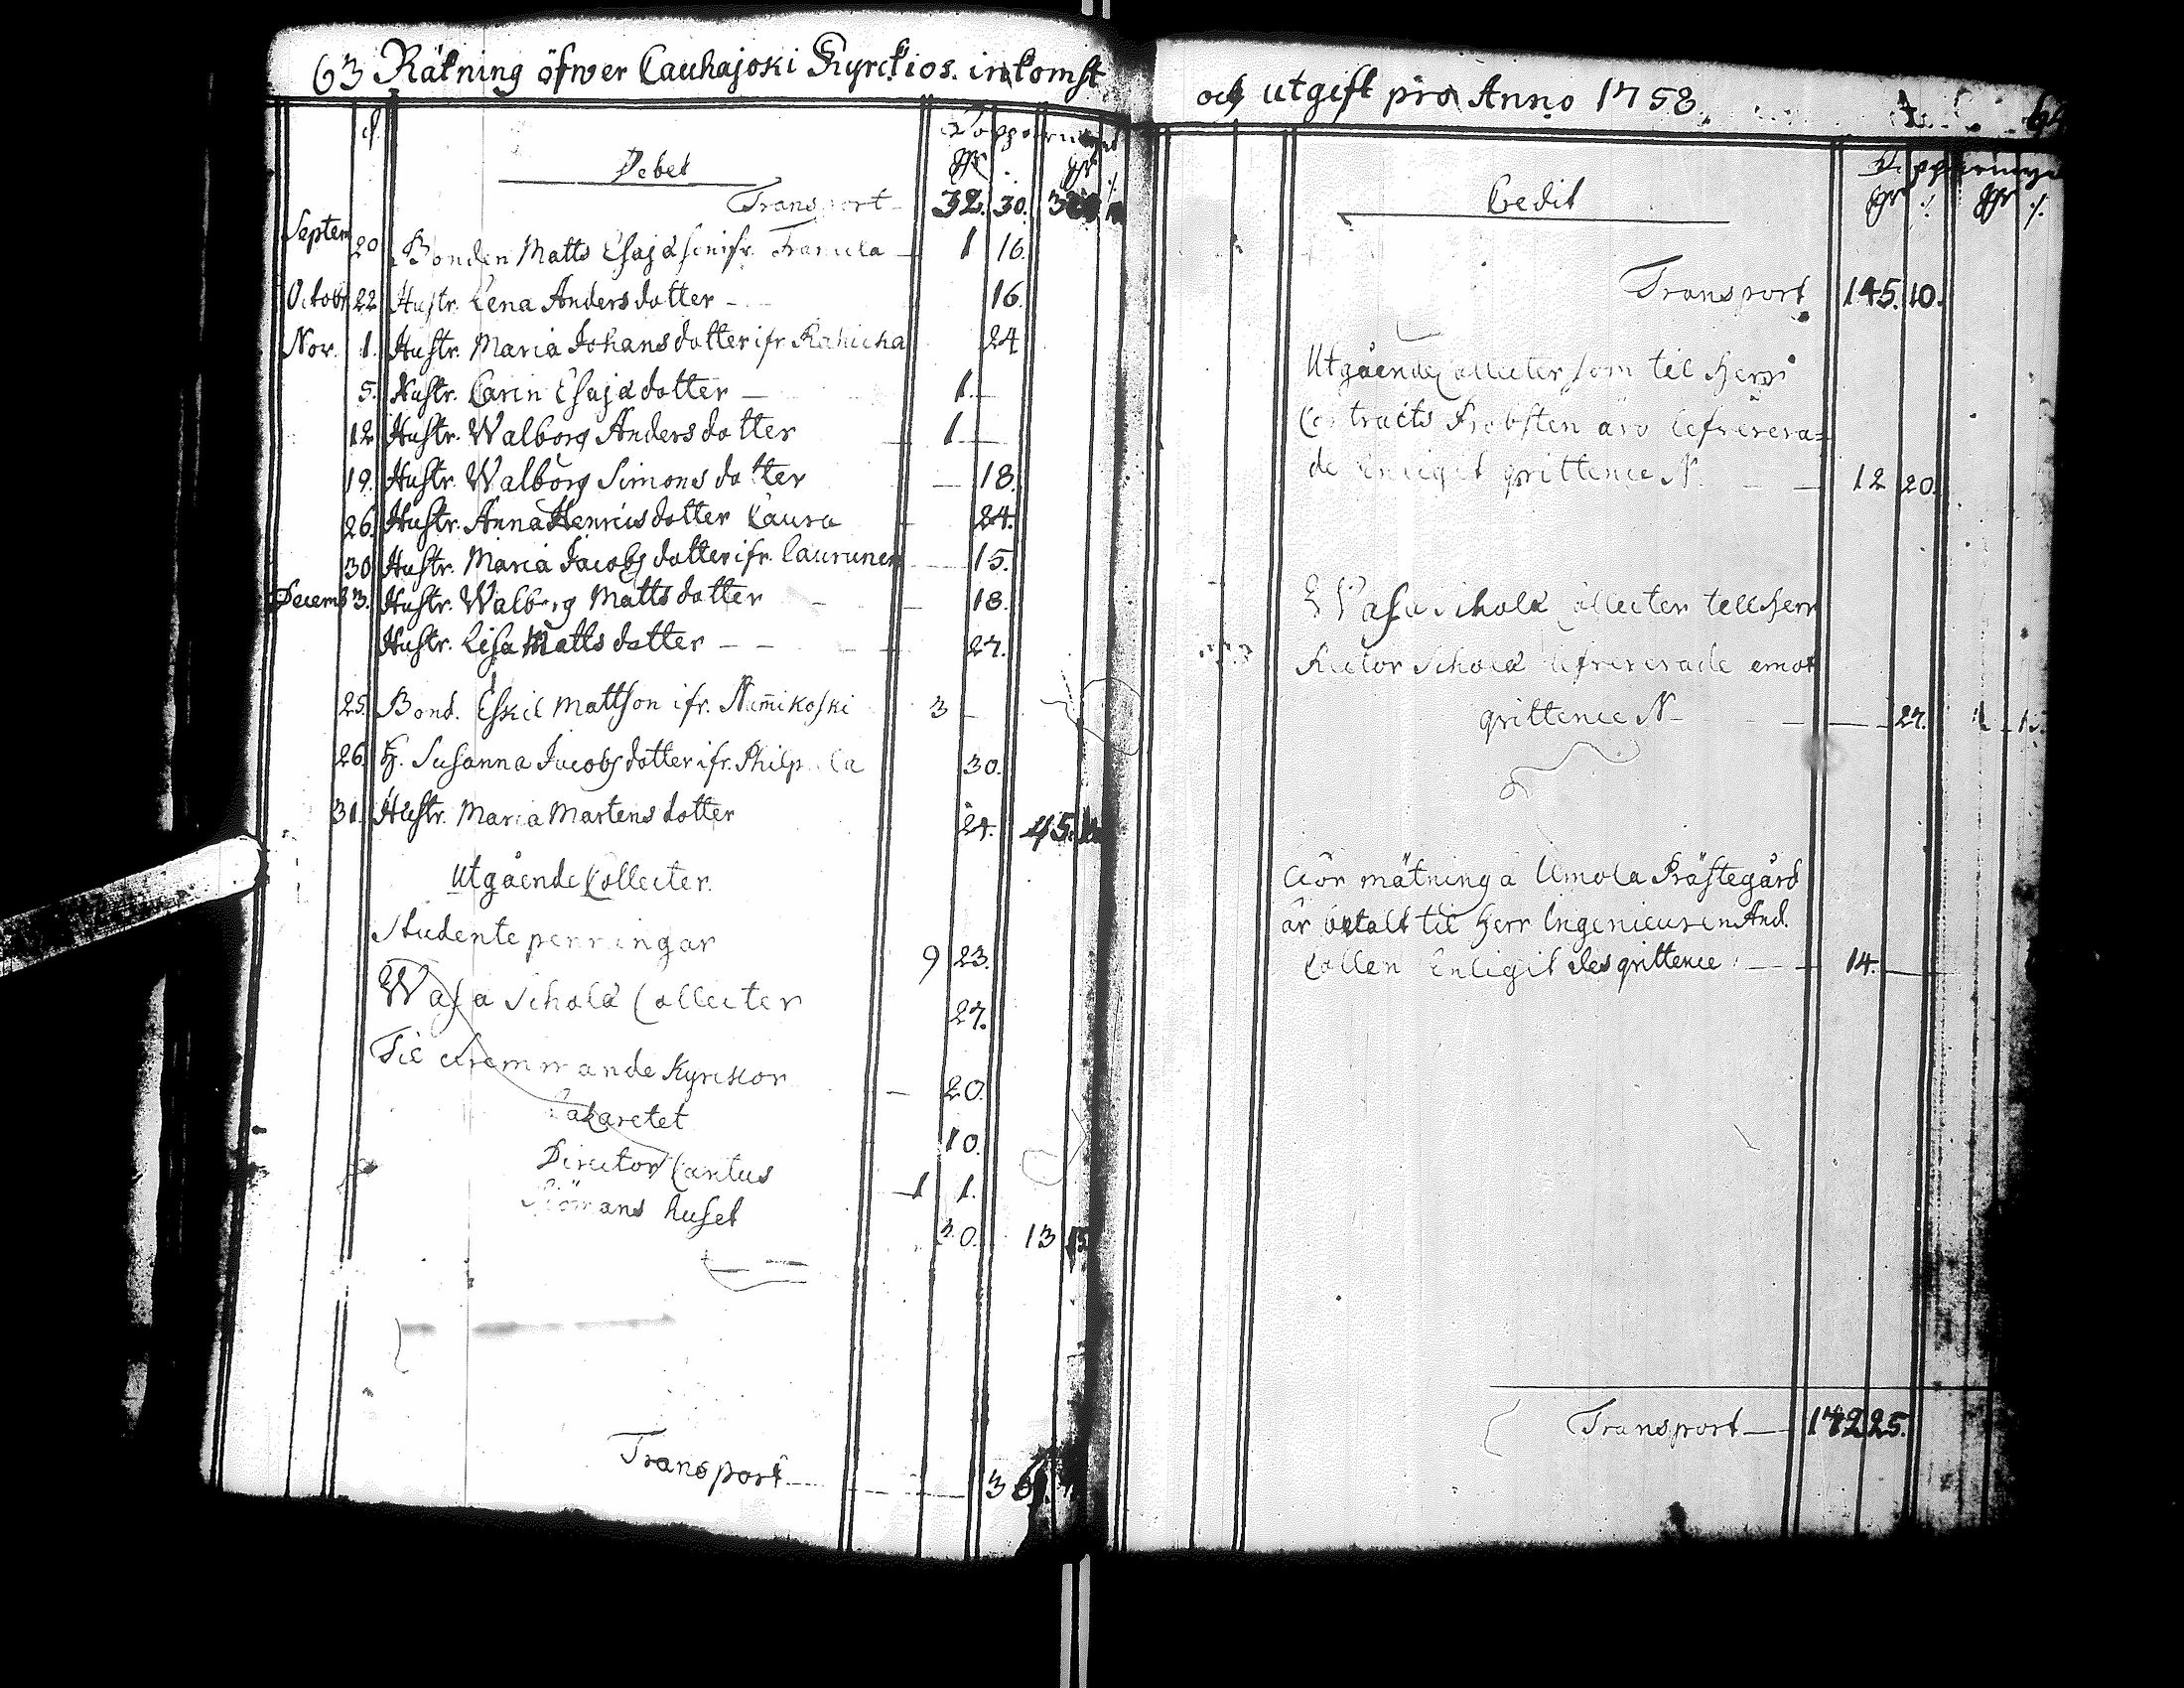 63 Räkning öfwer Cauhajoki Kyrckios. inkomst
d.
Debet
Transport 32. 30.
Septem 20 Bonden Matts Esajæ son ifr. 1 16.
Octobr 22 Hustr. Lena Andersdotter - 16.
Nov. 1. Hustr. Maria Johansdotter ifr 24
5. Hustr. Carin Esajædotter — 1. —
12 Hustr. Walborg Andersdotter — 1 —
19. Hustr. Walborg Simonsdotter — 18.
26. Hustr. Anna Henricsdotter Caura 24.
30 Hustr. Maria Jacobsdotter ifr. Laurunen 15.
Decemb 3. Hustr. Walborg Mattsdotter — 18.
Hustr. Lisa Mattsdotter — 27.
25. Bond. Eskil Mattson ifr. Nimikoski 3 —
26. H. Susanna Jacobsdotter ifr. 30.
31. Hustr. Maria Martensdotter 24. 45.
Utgående Collecter.
Studentepenningar 9 23.
Wasa Scholæ Collecter 27.
Til Kyrckor — 20.
Lazaretet 10.
Director Cantus 1 1.
Siömans huset 30. 13
Transport
och utgift pro Anno 1758
Credit
Transport 145. 10.
Utgående Collecter som til Herr
Contracts Probsten äro lefverera=
de enligit qvittence N. — 12 20.
Wasa Scholæ Collecter till Herr
Rector Scholæ lefvererade emot
qvittence N — 27.
mätning å Umola Prästegård
är betalt til Herr Ingenieuren And.
Collen Enligit des qvittence — 14. —
Transport — 172 25.